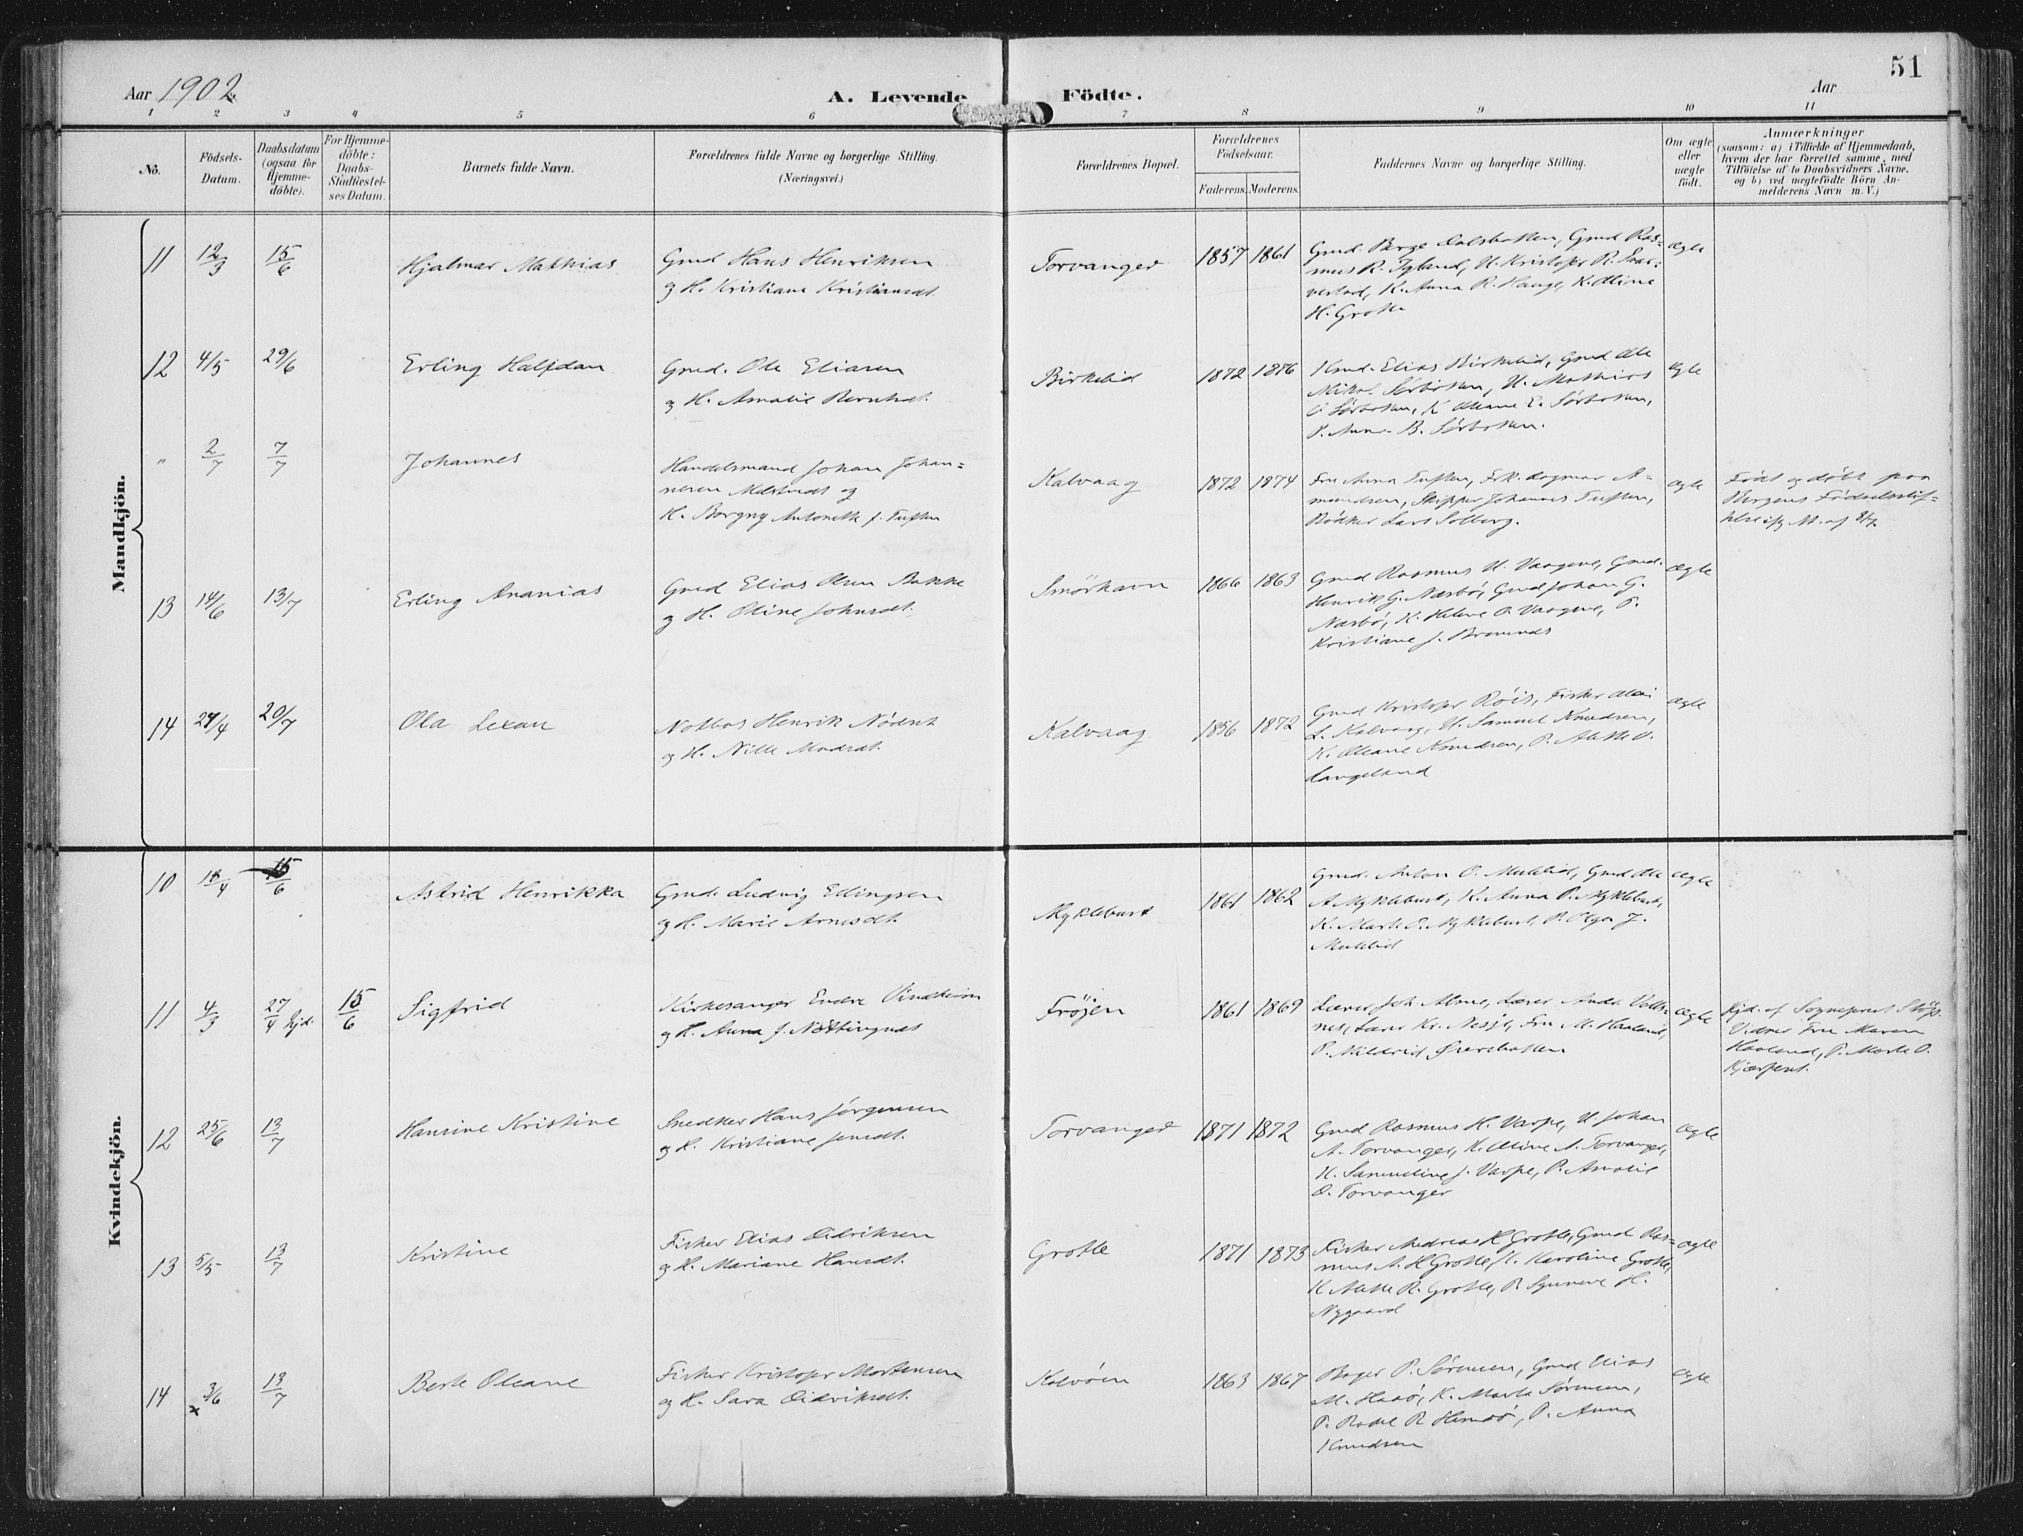 51
Aar 1902
A. Levende Födte.
Aar
1 2 3 4 5 6 7 8 9 10 11
No.
Födsels-
Datum.
Daabsdatum
(ogsaa for
Hjemme-
döbte).
For Hjemme-
döbte:
Daabs-
Stadfæstel-
ses Datum.
Barnets fulde Navn.
Forældrenes fulde Navne og borgerlige Stilling.
(Næringsvei.)
Forældrenes Bopæl.
Forældrenes
Födselsaar.
Faderens. Moderens.
Faddernes Navne og borgerlige Stilling.
Om ægte
eller
uægte
födt.
Anmærkninger
(saasom: a) i Tilfælde af Hjemmedaab,
hvem der har forrettet samme, med
Tilföielse af to Daabsvidners Navne.
og b) ved uægtefödte Börn An-
melderens Navn m. V.)
Mandkjön.
11 12/3 15/6 Hjalmar Mathias
Gmd Hans Henriksen
og H. Kristiane Kristiansdt.
Torvanger 1857 1861
Gmd. Berge Dalsbotten, Gmd Ras-
mus R. Igland, U. Kristofer R. Svar-
vestad, K. Anna R. Hauge, K. Oline
H. Grotle
ægte
12 4/5 29/6 Erling Halfdan
Gmd. Ole Eliasen
og H. Amalie Berntsdt.
Birkelid 1872 1876
Gmd. Elias Birkelid, Gmd Ole
Nikol. Sørbotten, U. Mathias
O Sørbotten, K Oleane E. Sørbotten,
P. Anne B. Sørbotten.
ægte
" 2/7 7/7 Johannes
Handelsmand Johan Johan-
nesen
og
H. Borgny Antonette f. Tuften
Kalvaag 1872 1874
Fru Anna Tuften, Frk. Dagmar A-
mundsen, Skipper Johannes Tuften,
Bødker Lars Solberg.
ægte
Født og døbt paa
Bergens Fødselsstif-
telse ifg M. af 8/7.
13 14/6 13/7 Erling Ananias
Gmd Elias Olsen Bakke
og H. Oline Johnsdt.
Smörhavn 1866 1863
Gmd Rasmus U. Vaagene, Gmd.
Henrik G. Næsbø, Gmd Johan G.
Næsbø, K. Helene O. Vaagene, P.
Kristiane J. Bremnes
ægte
14 27/4 20/7 Ola Lexau
Notbas Henrik
og H. Nille Madsdt.
Kalvaag 1856 1872
Gmd Kristofer Røis, Fisker
L. Kalvaag, U. Samuel Knudsen,
K. Oleane Knudsen, P. Alette O.
Langeland
ægte
Kvindekjön.
10 15/6 Astrid Henrikka
Gmd. Ludvig Ellingsen
og H. Marie Arnesdt.
Myklebust 1861 1862
Gmd. Anton O. Muldlid, Gmd Ole
A Myklebust, K. Anna P. Myklebust,
K. Marte O. Myklebust, P. Olga J.
Muldlid
ægte
11 4/3 27/4 hjd. 15/6 Sigfrid
Kirkesanger Endre Vindheim
og H. Anna f. Nøttingnes
Fröjen 1861 1869
Lærer Joh Alme, Lærer Andr. Vell-
nes, Lærer Kr. Nesje, Fru M. Haaland,
P. Mildrid
ægte
Hjd. af Sogneprest
Vidner Fru Maren
Haaland, P. Marte O.
12 25/6 13/7 Hansine Kristine
Snedker Hans Jørgensen
og H. Kristiane Jensdt.
Torvanger 1871 1872
Gmd Rasmus H. Varpe, U Johan
A. Torvanger, K. Oline A. Torvanger,
K. Sanneline J. Varpe, P. Amalie
O. Torvanger
ægte
13 5/5 13/7 Kristine
Fisker Elias Didriksen
og H. Mariane Hansdt.
Grotle 1871 1873
Fisker Andreas H Grotle, Gmd Ras-
mus A. H Grotle, K. Karoline Grotle,
K Alette R. Grotle, P. Synneve H.
Nygaard
ægte
14 3/6 x 13/7 Berte Oleane
Fisker Kristofer Mortensen
og H. Sara Didriksdt.
Kalvöen 1863 1867
P. Sørensen, Gmd Elias
M. Hasø, K. Marta Sørensen,
P. Anna
Knudsen
ægte